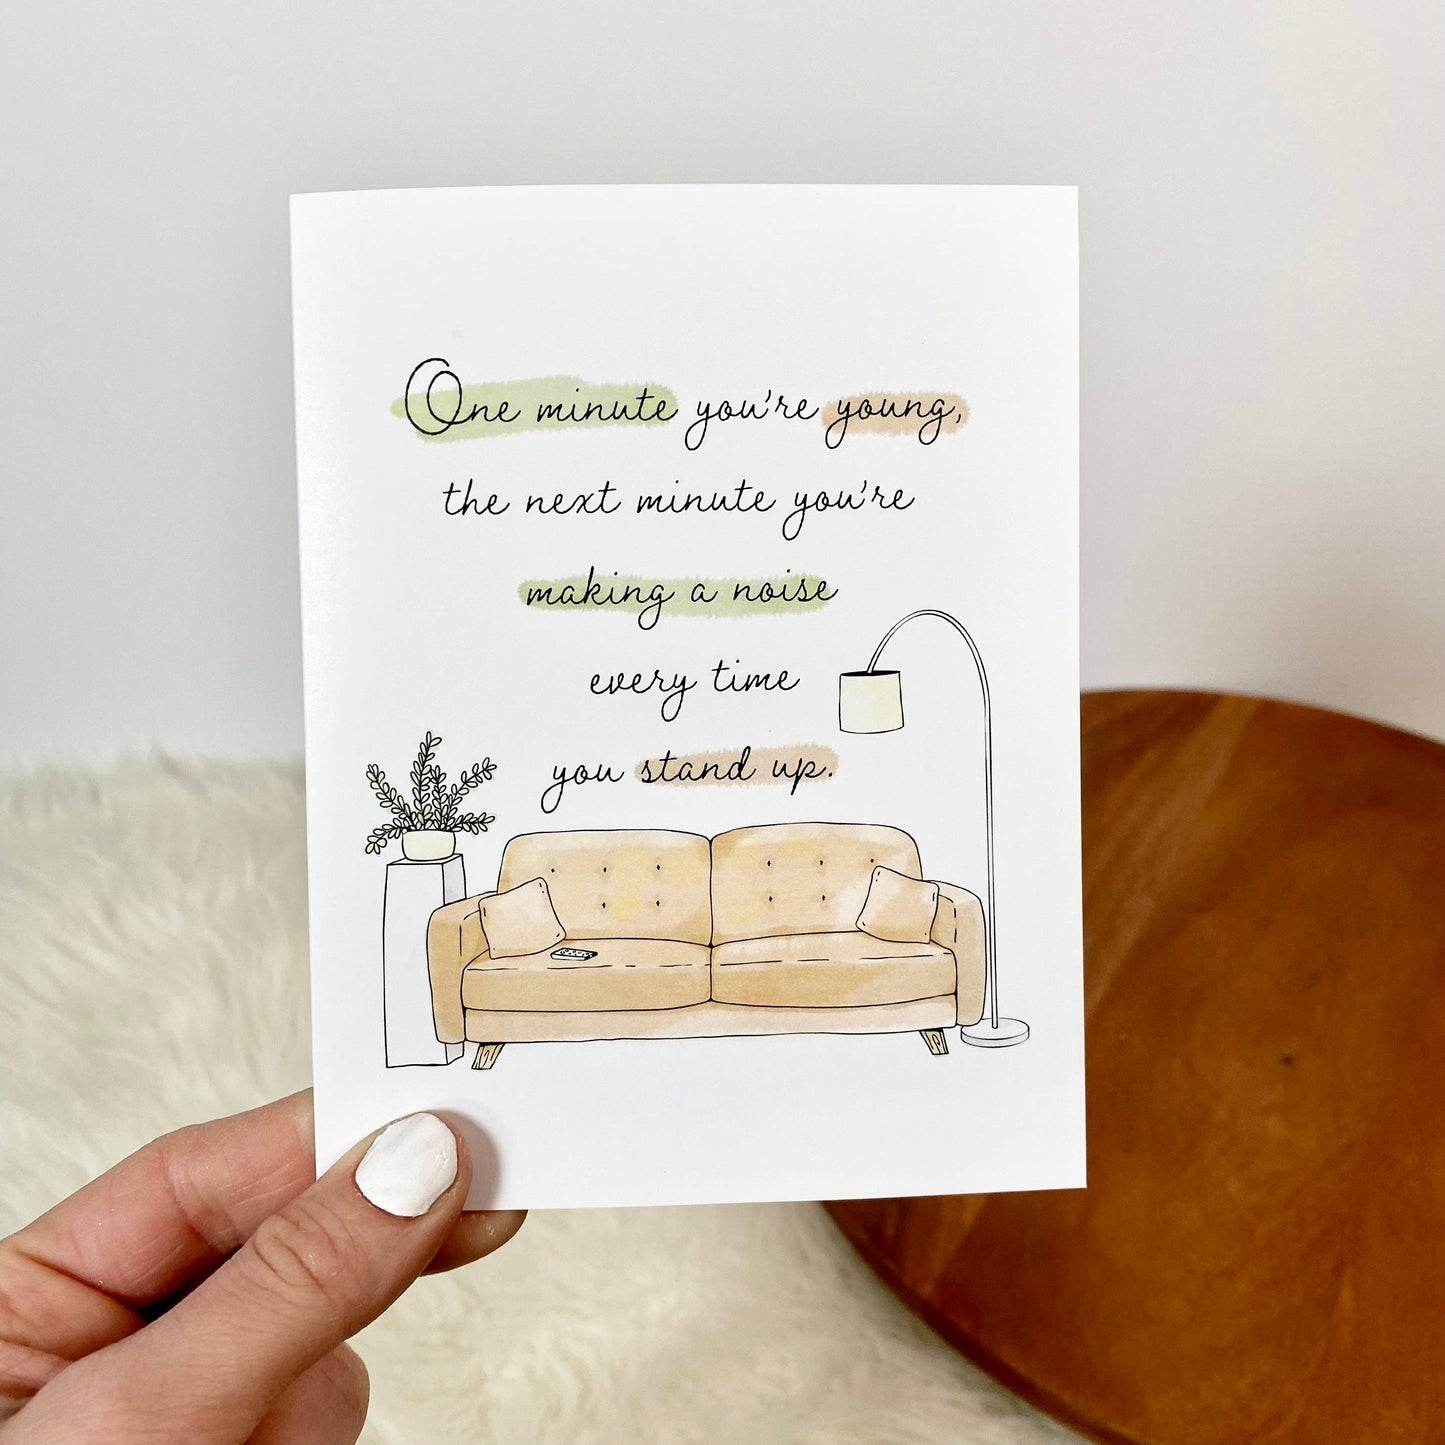 One minute you're young,
the next minute you're
making a noise
every time
you stand up.